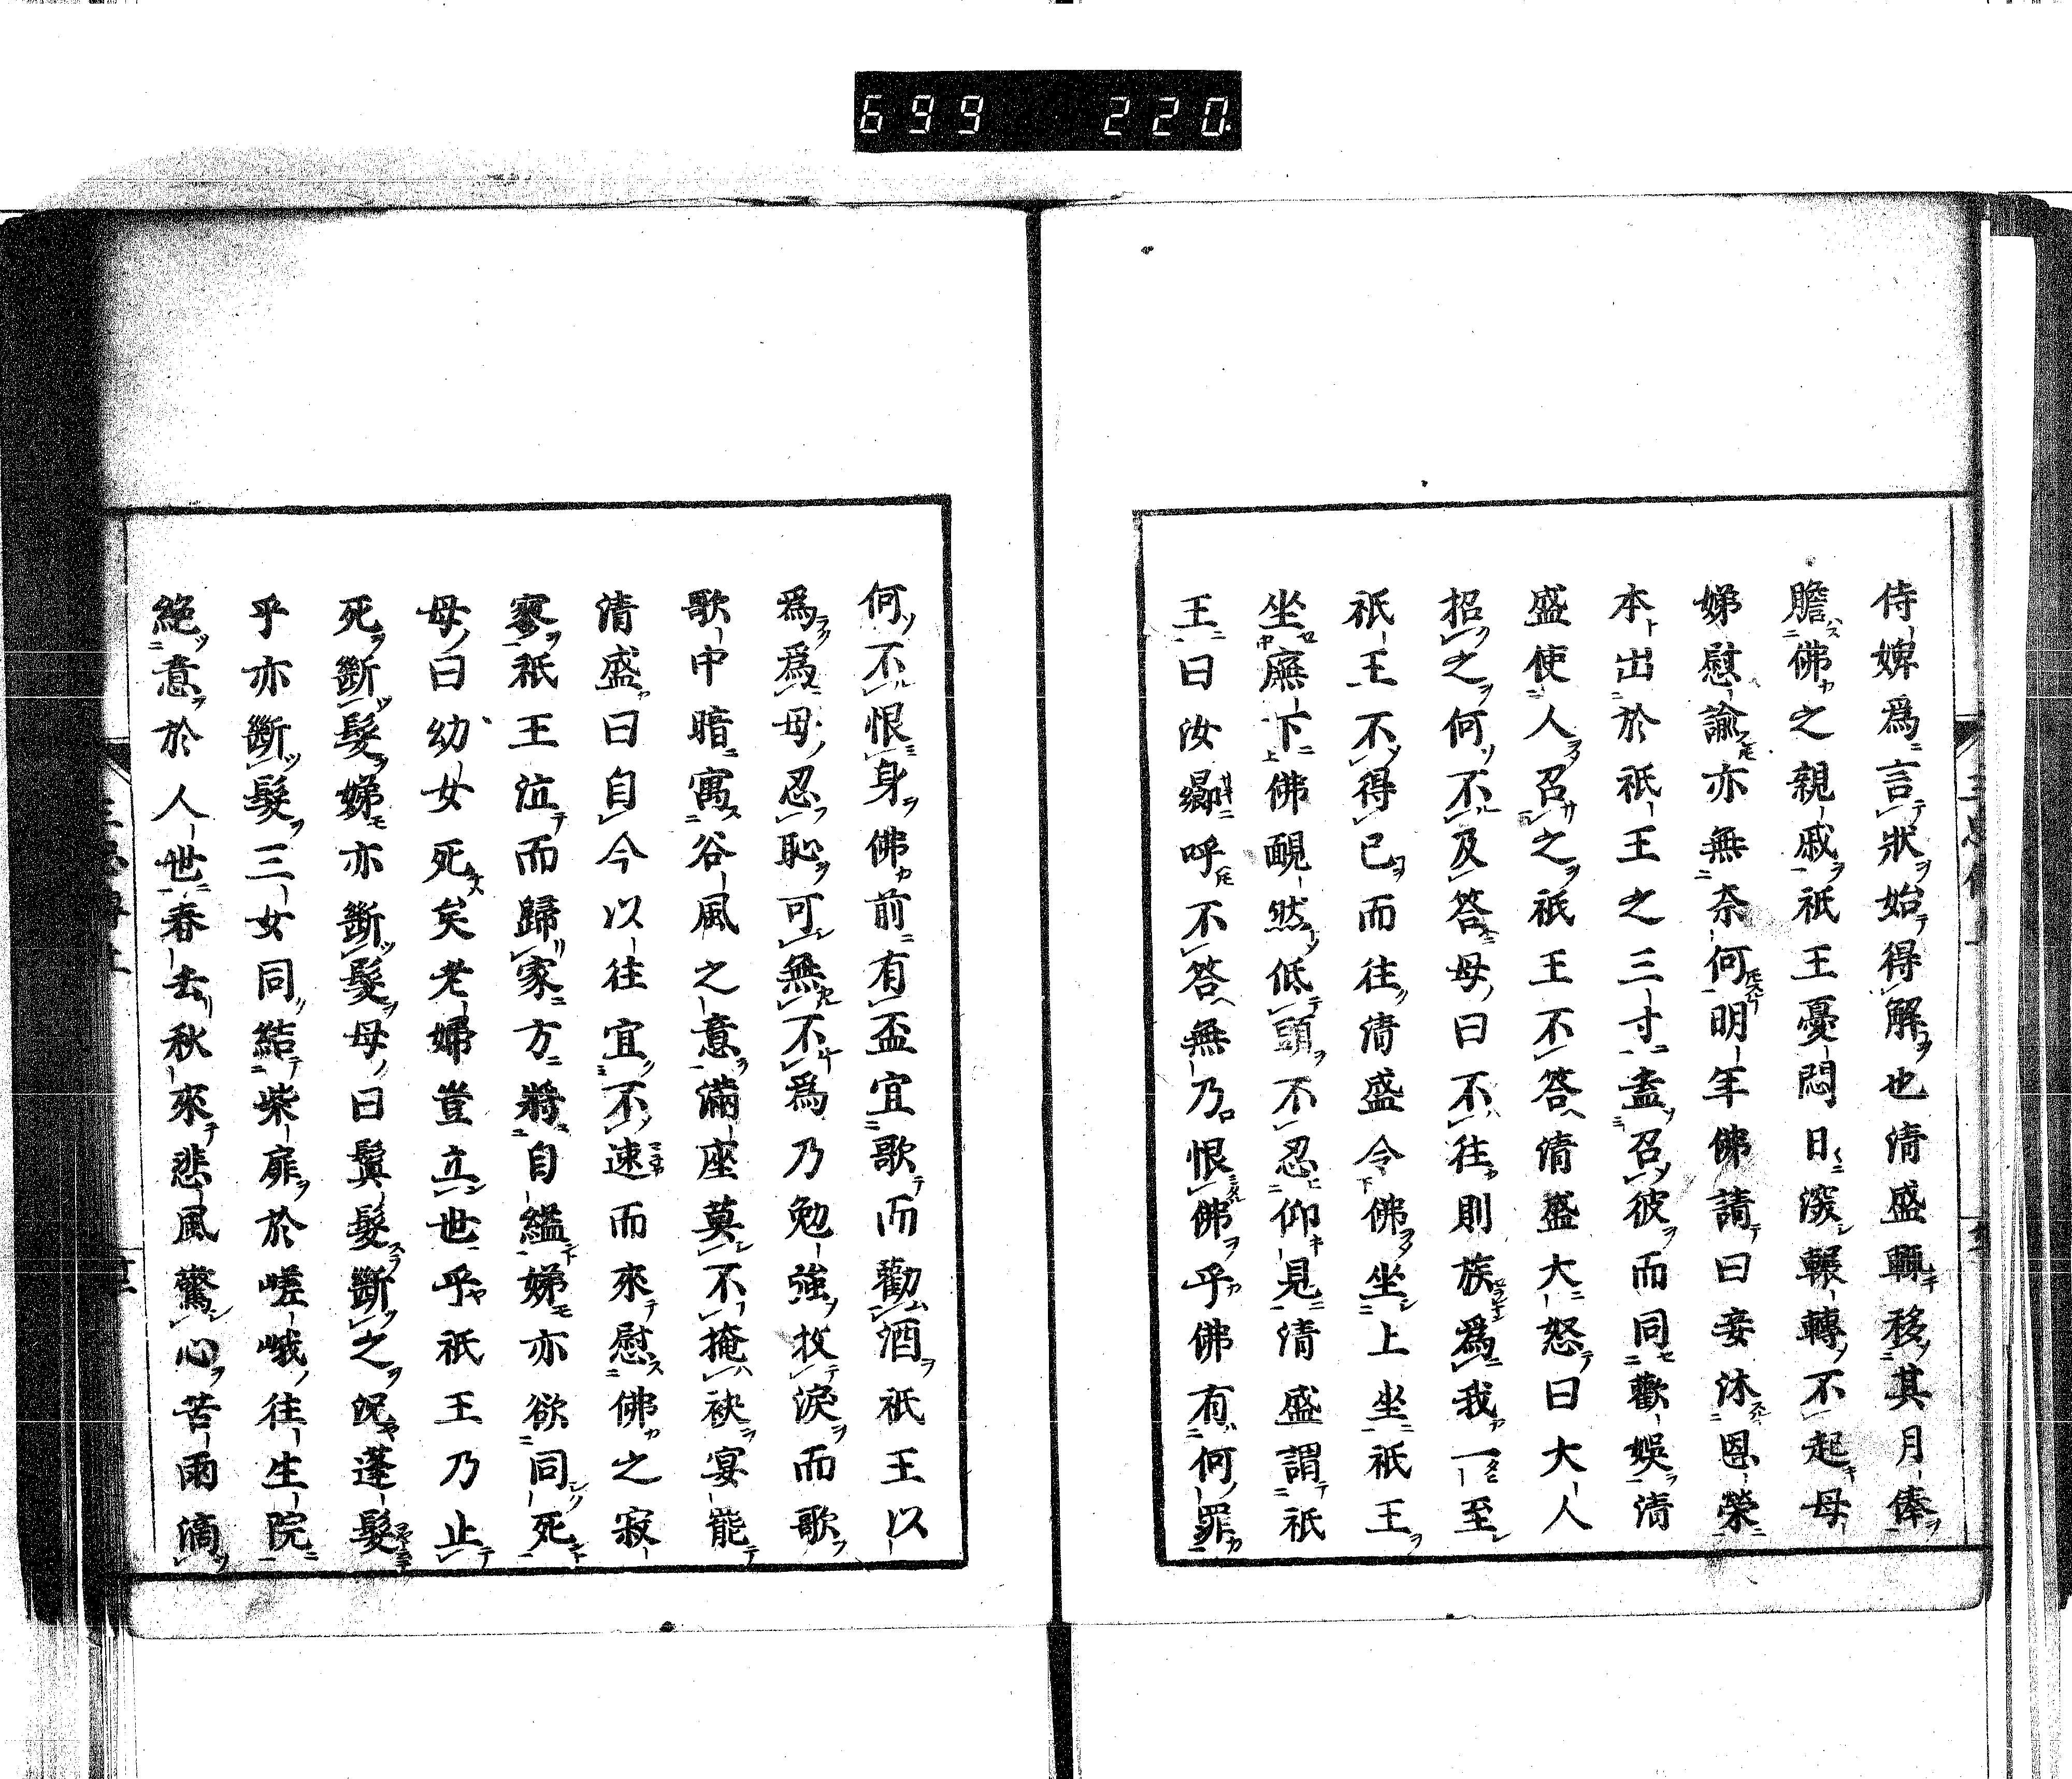 699 220
侍婢爲言狀始得解也清盛輙移其月俸
贍佛之親戚祇王憂悶日深輾轉不起母
娣慰諭亦無奈何明年佛請曰妾沐恩榮
本出於祇王之三寸盍召彼而同歡娯清
盛使人召之祇王不答清盛大怒曰大人
招之何不及答母曰不往則族爲我一至
祇王不得已而往清盛令佛坐上坐祇王
坐廡下佛靦然低頭不忍仰見清盛謂祇
王曰汝曏呼不答無乃恨佛乎佛有何罪
何不恨身佛前有盃宜歌而勸酒祇王以
爲爲母忍恥可無不爲乃勉強抆淚而歌
歌中暗寓谷風之意滿座莫不掩袂宴罷
清盛曰自今以往宜不速而來慰佛之寂
寥祇王泣而歸家方將自縊娣亦欲同死
母曰幼女死矣老婦豈立世乎祇王乃止
死斷髮娣亦斷髮母曰鬒髮斷之況蓬髮
乎亦斷髮三女同結柴扉於嵯峨往生院
絶意於人世春去秋來悲風驚心苦雨滴